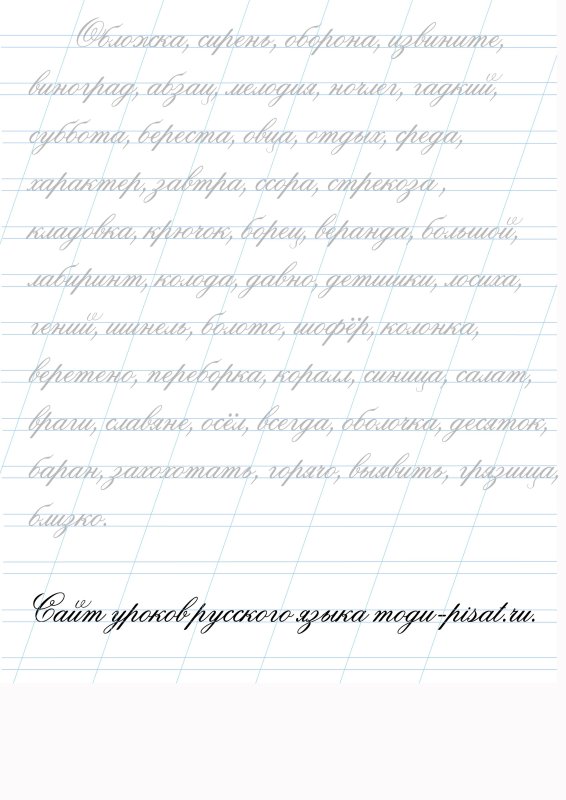 Обложка, сирень, оборона, извините,
виноград, абзац, мелодия, ночлег, гадкий,
суббота, береста, овца, отдых, среда,
характер, завтра, ссора, стрекоза,
кладовка, крючок, борец, веранда, большой,
лабиринт, колода, давно, детишки, лосиха,
гений, шинель, болото, шофёр, колонка,
веретено, переборка, коралл, синица, салат,
враги, славяне, осёл, всегда, оболочка, десяток,
баран, захохотать, горячо, выявить, грязища,
близко.
Сайт уроков русского языка mogu-pisat.ru.